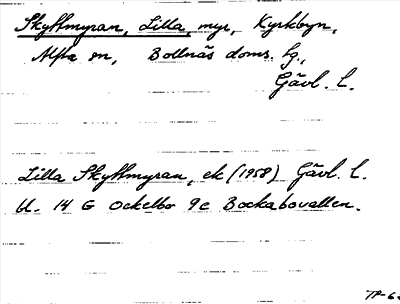 Skyttmyran, Lilla, myr, Kyrkbyn,
Alfta sn, Bollnäs doms. hg.,
Gävl. l.
Lilla Skyttmyran, ek (1958) Gävl. l.
bl. 14 G Ockelbo 9c Bockabovallen.